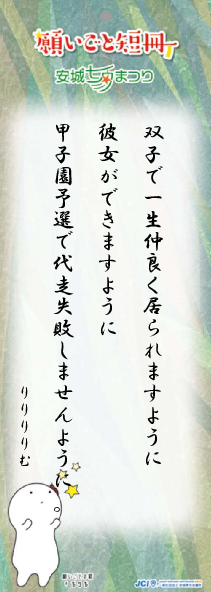 願いごと短冊
安城七夕まつり
双子で一生仲良く居られますように
彼女ができますように
甲子園予選で代走失敗しませんように
りりりりむ
JCI